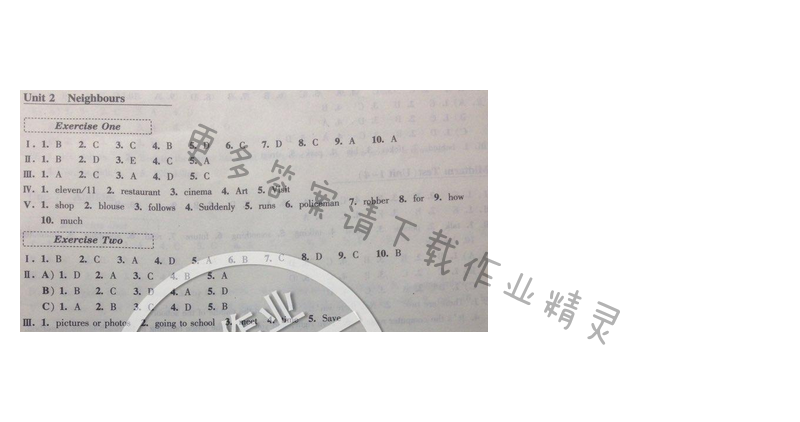 Unit 2 Neighbours
Exercise One
Ⅰ. 1. B 2. C 3. C 4. B 5. D 6. C 7. D 8. C 9. A 10. A
Ⅱ. 1. B 2. D 3. E 4. C 5. A
Ⅲ. 1. A 2. C 3. A 4. D 5. C
Ⅳ. 1. eleven/11 2. restaurant 3. cinema 4. Art 5. Visit
Ⅴ. 1. shop 2. blouse 3. follows 4. Suddenly 5. runs 6. policeman 7. robber 8. for 9. how
10. much
Exercise Two
Ⅰ. 1. B 2. C 3. A 4. D 5. A 6. B 7. C 8. D 9. C 10. B
Ⅱ. A) 1. D 2. A 3. C 4. B 5. A
B) 1. B 2. C 3. D 4. A 5. D
C) 1. A 2. B 3. C 4. D 5. B
Ⅲ. 1. pictures or photos 2. going to school 3. meet 4. 5. Save
更多答案请下载作业精灵
作业